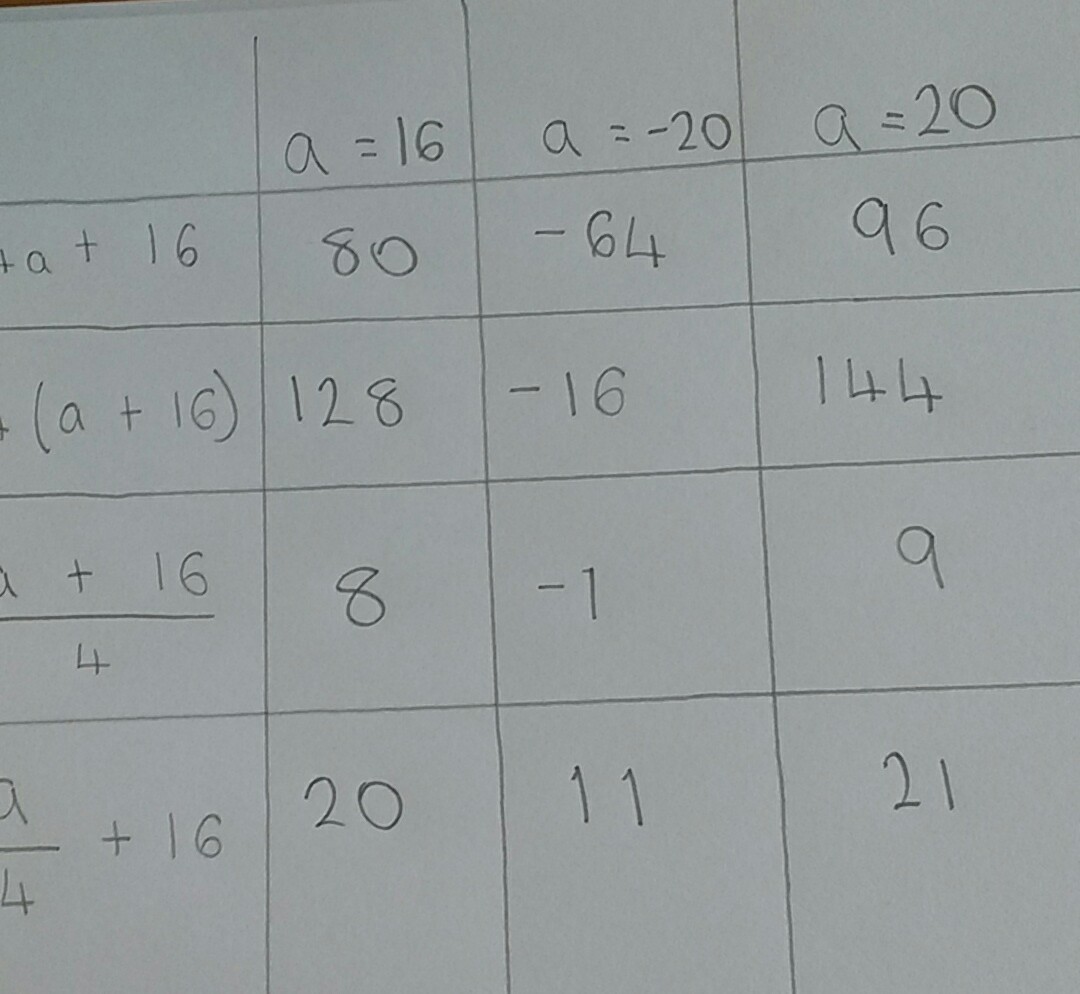 a = 16 a = -20 a = 20
4a + 16 80 -64 96
4(a + 16) 128 -16 144
a + 16 8 -1 9
4
a 20 11 21
+ 16
4